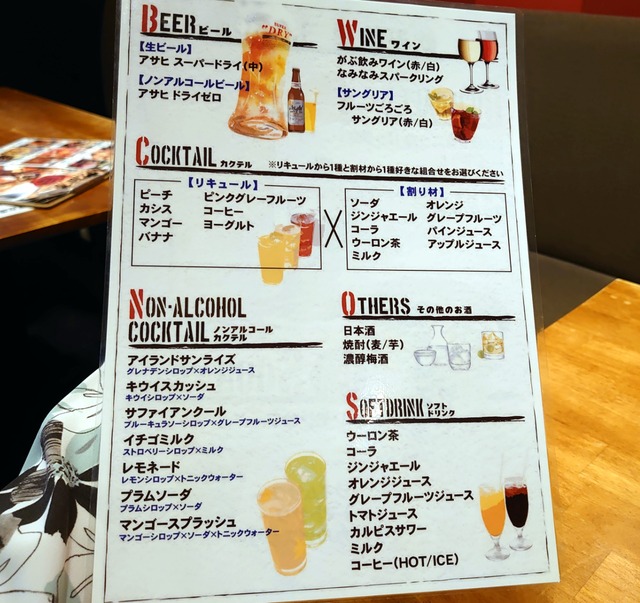 BEER ビール
【生ビール】
アサヒ スーパードライ(中)
【ノンアルコールビール】
アサヒ ドライゼロ
"DRY"
WINE ワイン
がぶ飲みワイン(赤/白)
なみなみスパークリング
【サングリア】
フルーツごろごろ
サングリア(赤/白)
COCKTAIL カクテル ※リキュールから1種と割材から1種好きな組合せをお選びください
【リキュール】
ピーチ ピンクグレーフルーツ
カシス コーヒー
マンゴー ヨーグルト
バナナ
X
【割り材】
ソーダ オレンジ
ジンジャエール グレープフルーツ
コーラ パインジュース
ウーロン茶 アップルジュース
ミルク
NON-ALCOHOL
COCKTAIL ノンアルコール
カクテル
アイランドサンライズ
グレナデンシロップ×オレンジジュース
キウイスカッシュ
キウイシロップ×ソーダ
サファイアンクール
ブルーキュラソーシロップ×グレープフルーツジュース
イチゴミルク
ストロベリーシロップ×ミルク
レモネード
レモンシロップ×トニックウォーター
プラムソーダ
プラムシロップ×ソーダ
マンゴースプラッシュ
マンゴーシロップ×ソーダ×トニックウォーター
OTHERS その他のお酒
日本酒
焼酎(麦/芋)
濃醇梅酒
SOFTDRINK ソフト
ドリンク
ウーロン茶
コーラ
ジンジャエール
オレンジジュース
グレープフルーツジュース
トマトジュース
カルピスサワー
ミルク
コーヒー(HOT/ICE)